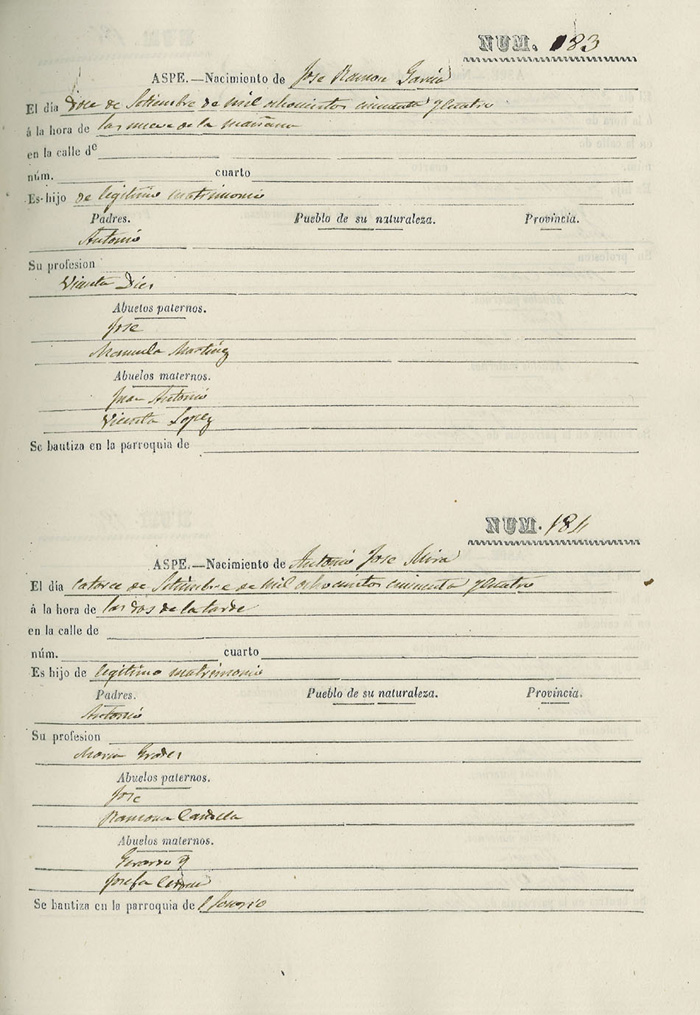 NUM. 183
ASPE.—Nacimiento de Jose Ramon Garcia
El día doce de Setiembre de mil ochocientos cincuenta y cuatro
á la hora de las nueve de la mañana
en la calle de
núm. cuarto
Es hijo de legitimo matrimonio
Padres. Pueblo de su naturaleza. Provincia.
Antonio
Su profesion
Vicenta Dies
Abuelos paternos.
Jose
Manuela Martinez
Abuelos maternos.
Juan Antonio
Vicenta Lopez
Se bautiza en la parroquia de
NUM. 184
ASPE.—Nacimiento de Antonio Jose Mira
El día catorce de Setiembre de mil ochocientos cincuenta y cuatro
á la hora de las dos de la tarde
en la calle de
núm. cuarto
Es hijo de legitimo matrimonio
Padres. Pueblo de su naturaleza. Provincia.
Antonio
Su profesion
Maria
Abuelos paternos.
Jose
Ramona
Abuelos maternos.
Josefa
Se bautiza en la parroquia de